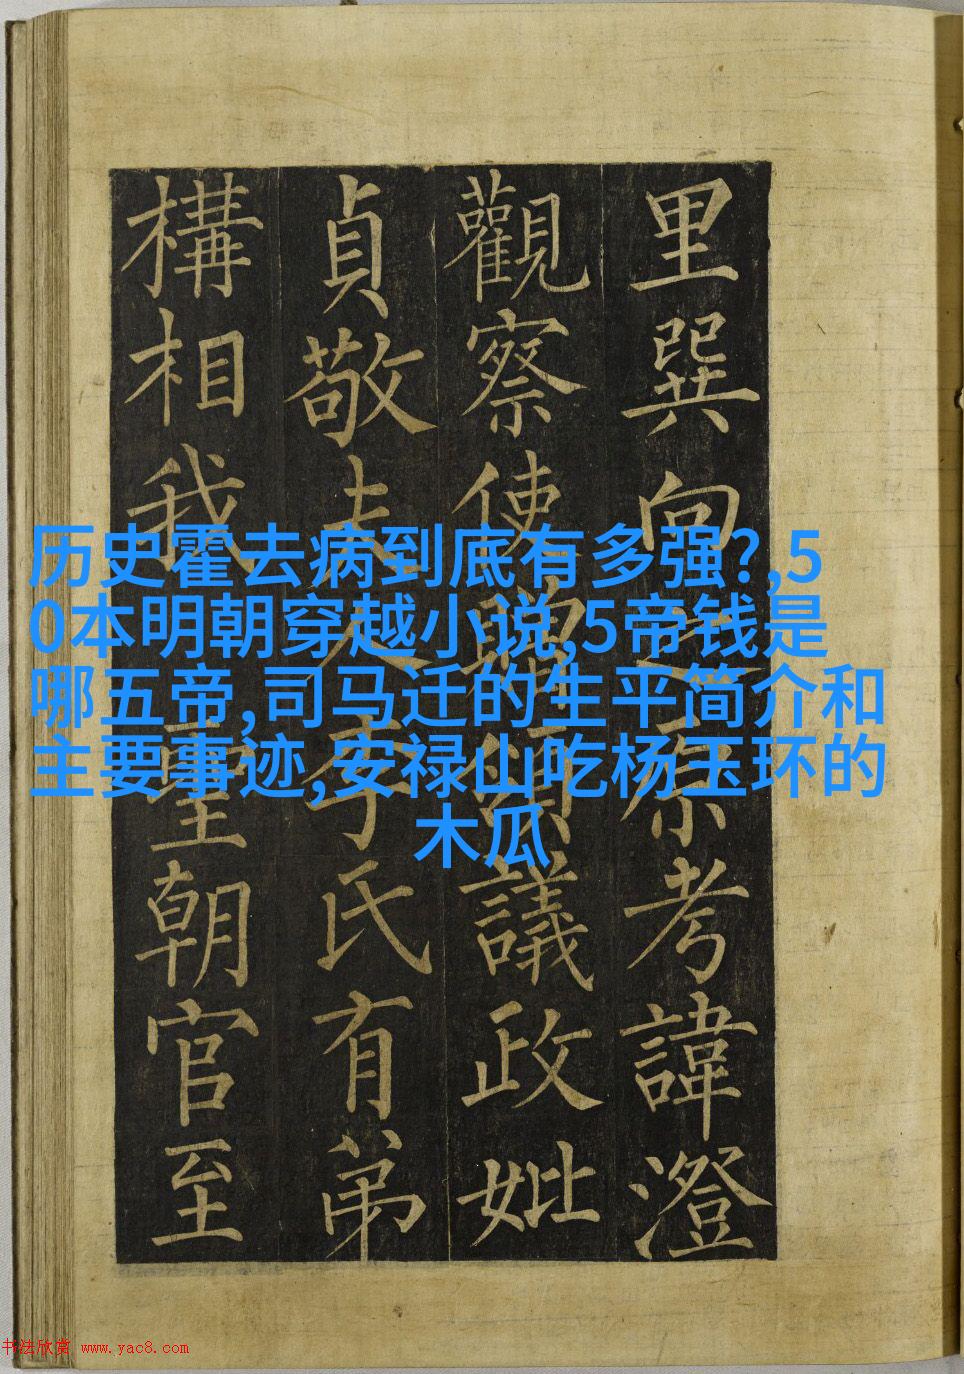 历史霍去病到底有多强?,5
0本明朝穿越小说,5帝钱是
哪五帝,司马迁的生平简介和
主要事迹,安禄山吃杨玉环的
木瓜
里巽向之原考諱澄
觀察使贈領議政妣
貞敬夫人李氏有弟
構相我聖朝官至
书法欣赏 www.yac8.com